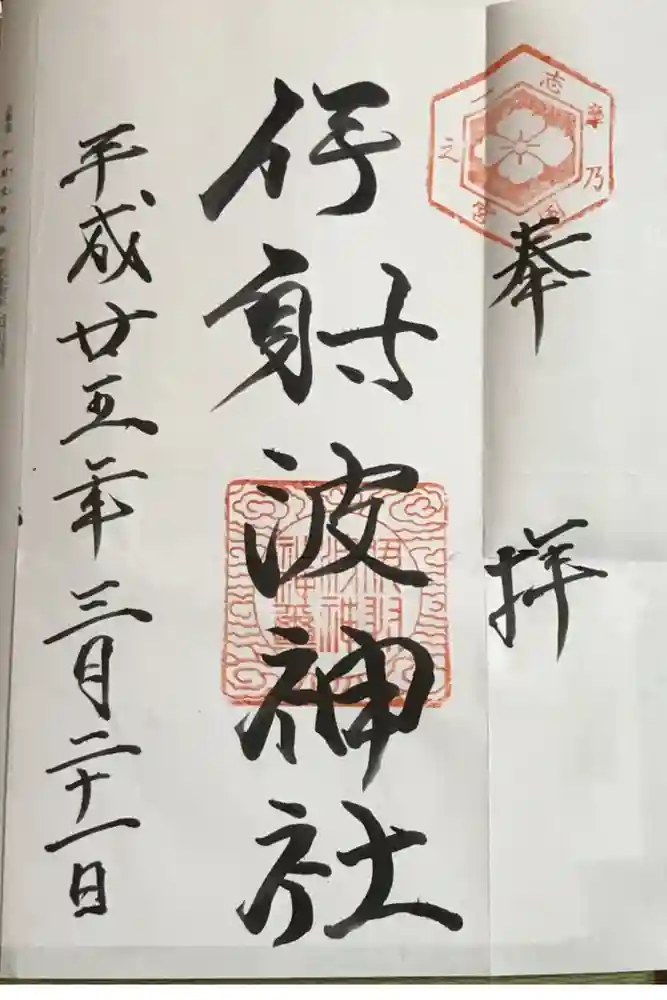 志摩乃国
一之宮
奉拝
伊射波神社
平成廿五年三月二十一日